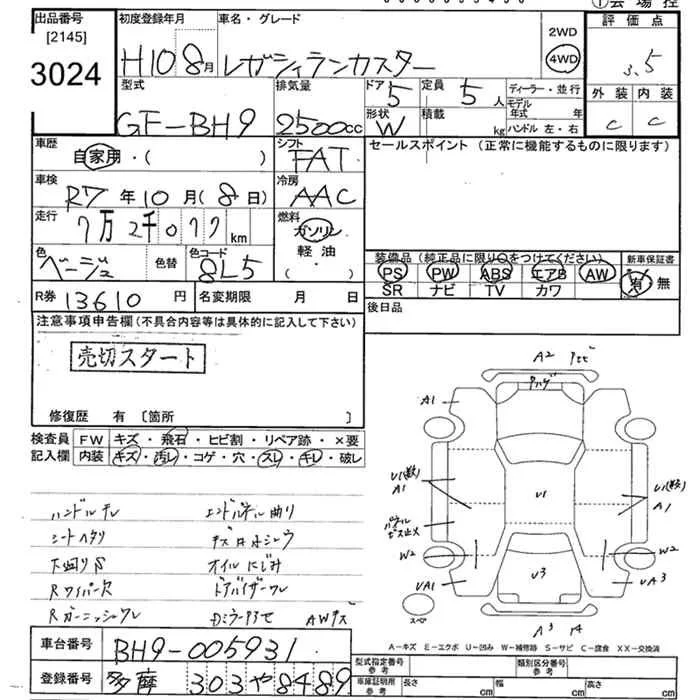 ① 会場控
出品番号
[2145]
3024
初度登録年月
H10 8月
車名・グレード
レガシィランカスター
2WD
4WD
評価点
3.5
外装 内装
C C
型式
GF-BH9
排気量
2500cc
ドア 5
定員 5人
形状 W
積載 kg
ディーラー・並行
モデル年式 年
ハンドル 左・右
車歴
自家用・( )
シフト
FAT
セールスポイント(正常に機能するものに限ります)
車検
R7年10月(8日)
冷房
AAC
走行
7万2千077km
燃料
ガソリン
軽油
( ・ )
色
ベージュ
色替
色コード
8L5
装備品(純正品に限り○をつけてください)
PS PW ABS エアB AW
SR ナビ TV カワ
新車保証書
有 無
R券 13610円
名変期限 月 日
後日品
注意事項申告欄(不具合内容等は具体的に記入して下さい)
売切スタート
修復歴 有 〔箇所 〕
検査員記入欄
FW キズ・飛石・ヒビ割・リペア跡・×要
内装 キズ・汚レ・コゲ・穴・スレ・キレ・破レ
ハンドルキレ エンドパネル曲り
シートヘタリ
下廻りS オイルにじみ
Rワイパー欠 ドアバイザーワレ
Rガーニッシュワレ AWキズ
A2
A1
U1
A1
A1
W2
W2
UA1
U3
UA3
スペア
A3
A-キズ E-エクボ U-凹み W-補修跡 S-サビ C-腐食 XX-交換済
車台番号
BH9-005931
登録番号
多摩 303 や 8489
型式指定番号 参考
類別区分番号 参考
車庫証明用 参考
長さ cm
幅 cm
高さ cm